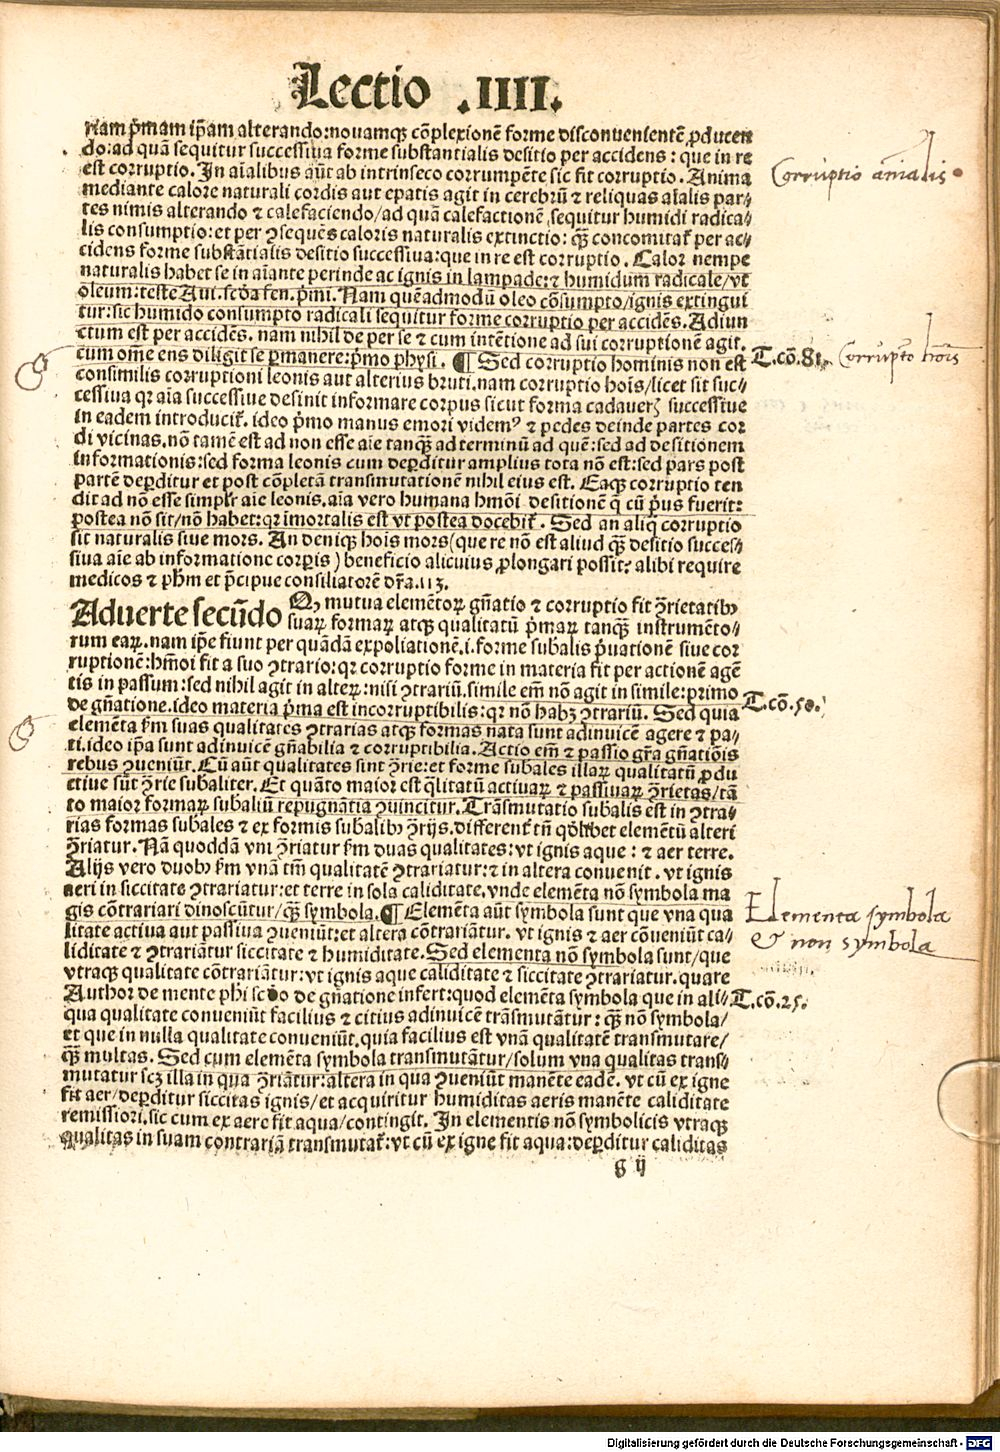 Lectio .IIII.
riam p̄mam ip̄am alterando: nouamqꝫ cōplexionē forme disconuenientē ꝓducen
do: ad quā sequitur successiua forme substantialis desitio per accidens: que in re
est corruptio. In aīalibus aūt ab intrinseco corrumpēte sic fit corruptio. Anima
mediante calore naturali cordis aut epatis agit in cerebrū ⁊ reliquas aīalis par⸗
tes nimis alterando ⁊ calefaciendo/ad quā calefactionē sequitur humidi radica⸗
lis consumptio: et per ꝯsequēs caloris naturalis extinctio: qꝫ̄ concomitat̄ per ac⸗
cidens forme substātialis desitio successiua: que in re est corruptio. Calor nempe
naturalis habet se in aīante perinde ac ignis in lampade: ⁊ humidum radicale/vt
oleum: teste Aui. scd̄a fen. p̄mi. Nam quēadmodū oleo cōsumpto/ignis extingui
tur: sic humido consumpto radicali sequitur forme corruptio per accidēs. Adiun
ctum est per accidēs. nam nihil de per se ⁊ cum intētione ad sui corruptionē agit.
cum om̄e ens diligit se p̲manere: p̄mo physi. ¶ Sed corruptio hominis non est
consimilis corruptioni leonis aut alterius bruti. nam corruptio hoīs/licet sit suc⸗
cessiua qꝛ aīa successiue desinit informare corpus sicut forma cadauerꝭ successiue
in eadem introducit̄. ideo p̄mo manus emori videmꝰ ⁊ pedes deinde partes cor
di vicinas. nō tamē est ad non esse aīe tanqꝫ̄ ad terminū ad quē: sed ad desitionem
informationis: sed forma leonis cum dep̲ditur amplius tota nō est: sed pars post
partē dep̲ditur et post cōpletā transmutationē nihil eius est. Eaqꝫ corruptio ten
dit ad nō esse simplr̄ aīe leonis. aīa vero humana hmōi desitionē q̄ cū p̄us fuerit:
postea nō sit/nō habet: qꝛ īmortalis est vt postea docebit̄. Sed an aliq̄ corruptio
sit naturalis siue mors. An deniqꝫ hoīs mors (que re nō est aliud qꝫ̄ desitio succes⸗
siua aīe ab informatione corp̲is) beneficio alicuius ꝓlongari possit: alibi require
medicos ⁊ ph̄m et p̄cipue consiliatorē dr̄a. 113.
Aduerte secūdo Qꝫ mutua elemētoꝝ gn̄atio ⁊ corruptio fit ꝯ̄rietatibꝫ
suaꝝ formaꝝ atqꝫ qualitatū p̄maꝝ tanqꝫ̄ instrumēto⸗
rum eaꝝ. nam ip̄e fiunt per quādā expoliationē. i. forme subalis p̄uationē siue cor
ruptionē: hmōi fit a suo ꝯtrario: qꝛ corruptio forme in materia fit per actionē agē
tis in passum: sed nihil agit in alteꝝ: nisi ꝯtrariū. simile em̄ nō agit in simile: primo
de gn̄atione. ideo materia p̄ma est incorruptibilis: qꝛ nō habꝫ ꝯtrariū. Sed quia
elemēta km̄ suas qualitates ꝯtrarias atqꝫ formas nata sunt adinuicē agere ⁊ pa⸗
ti. ideo ip̄a sunt adinuicē gn̄abilia ⁊ corruptibilia. Actio em̄ ⁊ passio gr̄a gn̄atiōis
rebus ꝯueniūt. Cū aūt qualitates sint ꝯ̄rie: et forme subales illaꝝ qualitatū ꝓdu
ctiue sūt ꝯ̄rie subaliter. Et quāto maior est q̄litatū actiuaꝝ ⁊ passiuaꝝ ꝯ̄rietas/tā
to maior formaꝝ subaliū repugnātia ꝯuincitur. Trāsmutatio subalis est in ꝯtra⸗
rias formas subales ⁊ ex formis subalibꝫ ꝯ̄rijs. different̄ tn̄ qd̄libet elemētū alteri
ꝯ̄riatur. Nā quoddā vni ꝯ̄riatur km̄ duas qualitates: vt ignis aque: ⁊ aer terre.
Alijs vero duobꝫ km̄ vnā tm̄ qualitatē ꝯtrariatur: ⁊ in altera conuenit. vt ignis
aeri in siccitate ꝯtrariatur: et terre in sola caliditate. vnde elemēta nō symbola ma
gis cōtrariari dinoscūtur/qꝫ̄ symbola. ¶ Elemēta aūt symbola sunt que vna qua
litate actiua aut passiua ꝯueniūt: et altera cōtrariātur. vt ignis ⁊ aer cōueniūt ca⸗
liditate ⁊ ꝯtrariātur siccitate ⁊ humiditate. Sed elementa nō symbola sunt/que
vtraqꝫ qualitate cōtrariātur: vt ignis aque caliditate ⁊ siccitate ꝯtrariatur. quare
Author de mente phi scd̄o de gn̄atione infert: quod elemēta symbola que in ali⸗
qua qualitate conueniūt facilius ⁊ citius adinuicē trāsmutātur: qꝫ̄ nō symbola/
et que in nulla qualitate conueniūt. quia facilius est vnā qualitatē transmutare/
qꝫ̄ multas. Sed cum elemēta symbola transmutātur/solum vna qualitas trans⸗
mutatur scꝫ illa in qua ꝯ̄riātur: altera in qua ꝯueniūt manēte eadē. vt cū ex igne
fit aer/dep̲ditur siccitas ignis/et acquiritur humiditas aeris manēte caliditate
remissiori. sic cum ex aere fit aqua/contingit. In elementis nō symbolicis vtraqꝫ
qualitas in suam contrariā transmutat̄: vt cū ex igne fit aqua: dep̲ditur caliditas
g ij
Corruptio aīalis
T. cō. 81.
Corruptio hoīs
T. cō. 50.
Elementa symbola
& non symbola
T. cō. 25.
Digitalisierung gefördert durch die Deutsche Forschungsgemeinschaft - DFG